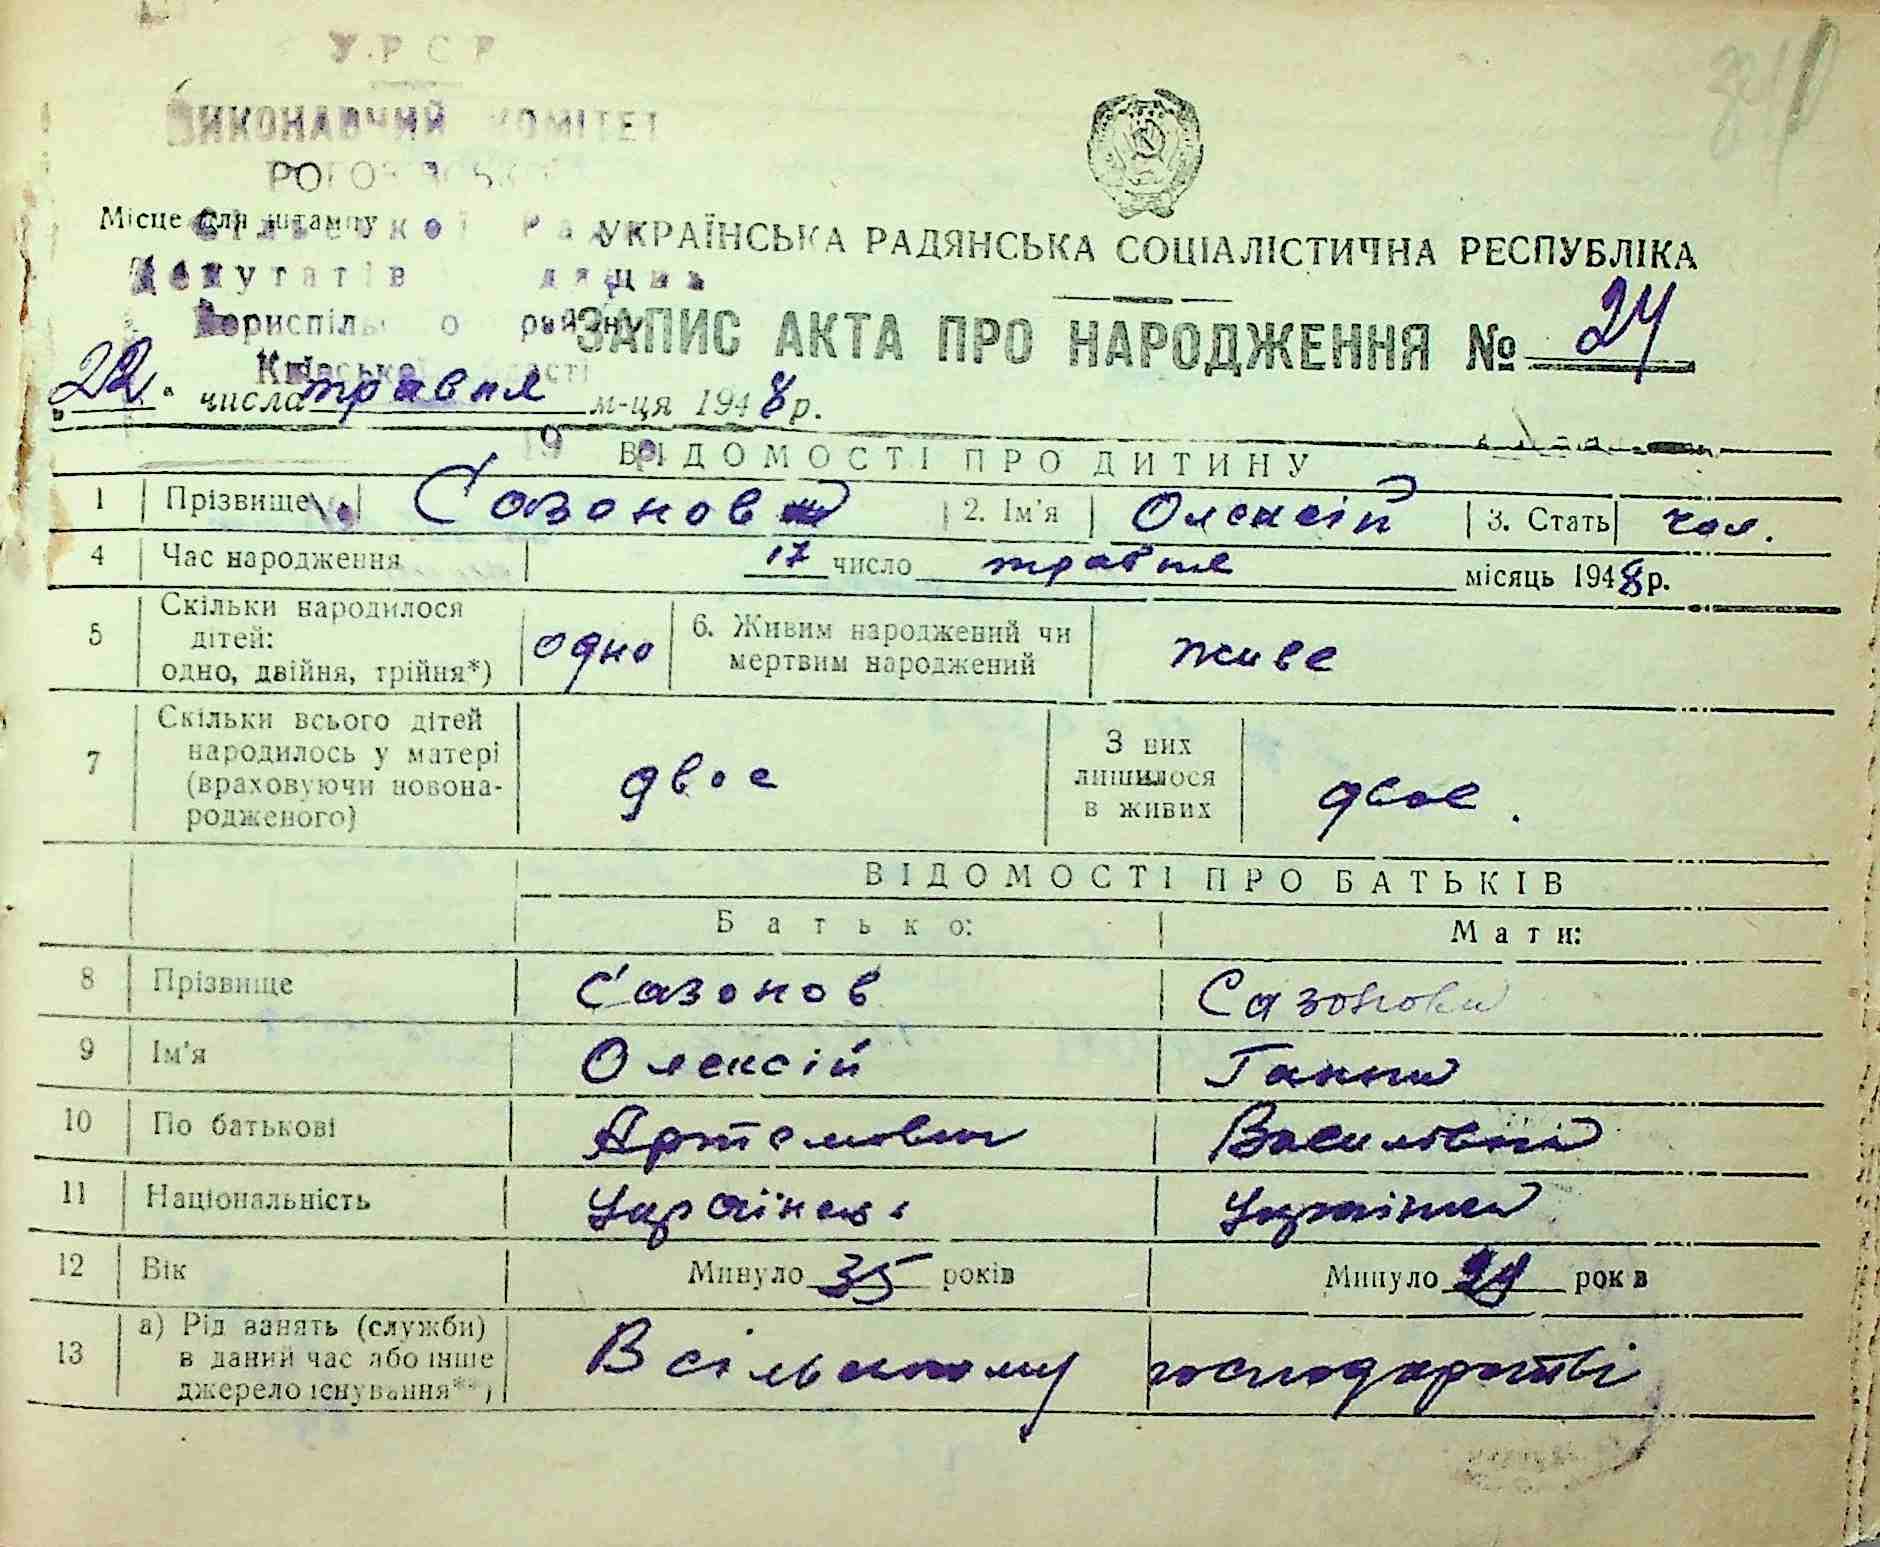 У.Р С Р
ВИКОНАВЧИЙ КОМІТЕТ
Місце для штампу Сільської Рад
УКРАЇНСЬКА РАДЯНСЬКА СОЦІАЛІСТИЧНА РЕСПУБЛІКА
Депутатів
Бориспіль о району
ЗАПИС АКТА ПРО НАРОДЖЕННЯ № 24
„22“ числа травня м-ця 1948 р.
19 р
ВІДОМОСТІ ПРО ДИТИНУ
1 Прізвище Сазонов 2. Ім'я Олексій 3. Стать чол.
4 Час народження 17 число травня місяць 1948 р.
5 Скільки народилося дітей: одно, двійня, трійня*) одно 6. Живим народжений чи мертвим народжений живе
7 Скільки всього дітей народилось у матері (враховуючи новонародженого) двоє З них лишилося в живих двоє.
ВІДОМОСТІ ПРО БАТЬКІВ
Батько: Мати:
8 Прізвище Сазонов Сазонова
9 Ім'я Олексій Ганна
10 По батькові Артемович Василівна
11 Національність Українець Українка
12 Вік Минуло 35 років Минуло рок в
13 а) Рід занять (служби) в даний час або інше джерело існування**) В сільському господарстві